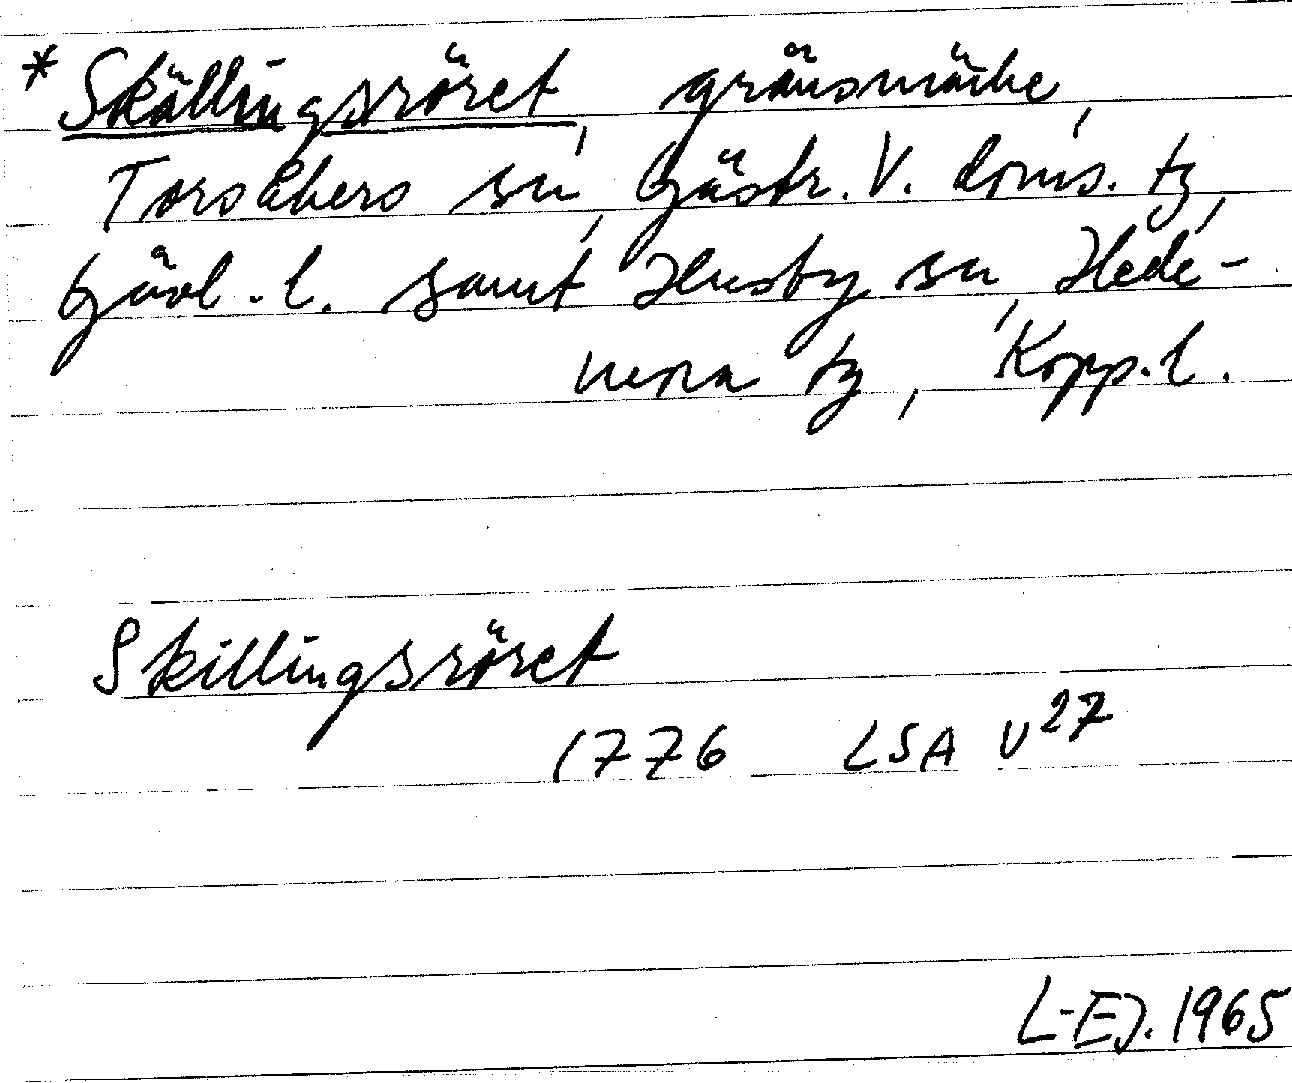 * Skällingsröret, gränsmärke,
Torsåkers sn, Gästr. V. doms. tg,
Gävl. l. samt Husby sn, Hede-
mora tg, Kopp. l.
Skillingsröret
1776 LSA V27
L-EJ. 1965